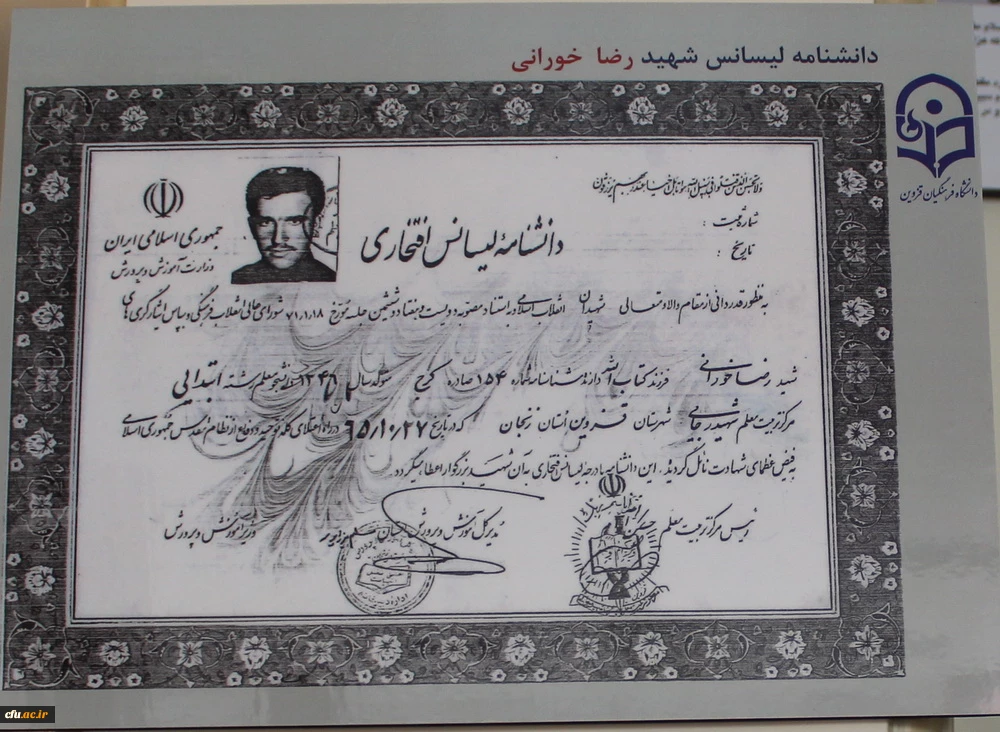 دانشنامه لیسانس شهید رضا خورانی
دانشگاه فرهنگیان قزوین
شماره ثبت :
تاریخ :
جمهوری اسلامی ایران
وزارت آموزش و پرورش
دانشنامهٔ لیسانس افتخاری
به منظور قدردانی از مقام والا و متعالی شهیدان انقلاب اسلامی و به استناد مصوبه دویست و هفتاد و ششمین جلسه مورخ ۷۱،۱،۱۸ شورای عالی انقلاب فرهنگی و بپاس ایثارگری های
شهید رضا خورانی فرزند کتاب الله دارنده شناسنامه شماره ۱۵۴ صادره کرج متولد سال ۱۳۴۵ دانشجو معلم رشته ابتدایی
مرکز تربیت معلم شهید رجایی شهرستان قزوین استان زنجان که در تاریخ ۶۵/۱۰/۲۷ در راه اعتلای کلمه توحید و دفاع از نظام مقدس جمهوری اسلامی
به فیض عظمای شهادت نائل گردید. این دانشنامه با درجه لیسانس افتخاری به آن شهید بزرگوار اعطا میگردد.
رئیس مرکز تربیت معلم
مدیر کل آموزش و پرورش استان
وزیر آموزش و پرورش
cfu.ac.ir